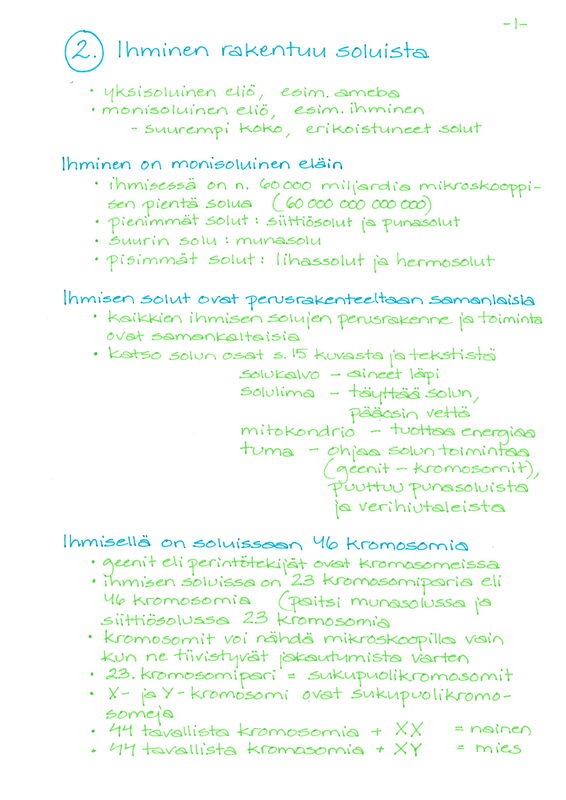 -1-
2. Ihminen rakentuu soluista
• yksisoluinen eliö, esim. ameba
• monisoluinen eliö, esim. ihminen
- suurempi koko, erikoistuneet solut
Ihminen on monisoluinen eläin
• ihmisessä on n. 60 000 miljardia mikroskooppi-
sen pientä solua (60 000 000 000 000)
• pienimmät solut : siittiösolut ja punasolut
• suurin solu : munasolu
• pisimmät solut : lihassolut ja hermosolut
Ihmisen solut ovat perusrakenteeltaan samanlaisia
• kaikkien ihmisen solujen perusrakenne ja toiminta
ovat samankaltaisia
• katso solun osat s. 15 kuvasta ja tekstistä
solukalvo - aineet läpi
solulima - täyttää solun,
pääosin vettä
mitokondrio - tuottaa energiaa
tuma - ohjaa solun toimintaa
(geenit - kromosomit),
puuttuu punasoluista
ja verihiutaleista
Ihmisellä on soluissaan 46 kromosomia
• geenit eli perintötekijät ovat kromosomeissa
• ihmisen soluissa on 23 kromosomiparia eli
46 kromosomia (paitsi munasolussa ja
siittiösolussa 23 kromosomia
• kromosomit voi nähdä mikroskoopilla vain
kun ne tiivistyvät jakautumista varten
• 23. kromosomipari = sukupuolikromosomit
• X- ja Y-kromosomi ovat sukupuolikromo-
someja
• 44 tavallista kromosomia + XX = nainen
• 44 tavallista kromosomia + XY = mies